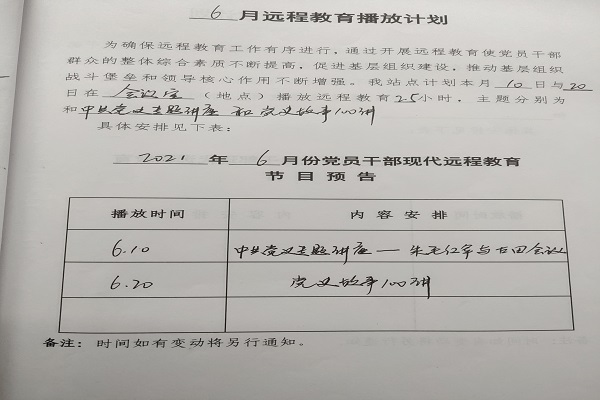 6 月远程教育播放计划
为确保远程教育工作有序进行，通过开展远程教育使党员干部
群众的整体综合素质不断提高，促进基层组织建设，推动基层组织
战斗堡垒和领导核心作用不断增强。我站点计划本月 10 日与 20
日在 会议室 （地点）播放远程教育 25 小时，主题分别为
和 中共党史主题讲座 和 党史故事100讲
具体安排见下表：
2021 年 6 月份党员干部现代远程教育
节目预告
播放时间 内容安排
6.10 中共党史主题讲座 — 朱毛红军与古田会议
6.20 党史故事100讲
备注：时间如有变动将另行通知。